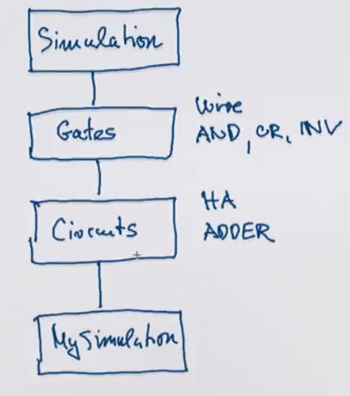 Simulation
Gates
Wire
AND, OR, INV
Circuits
HA
ADDER
MySimulation